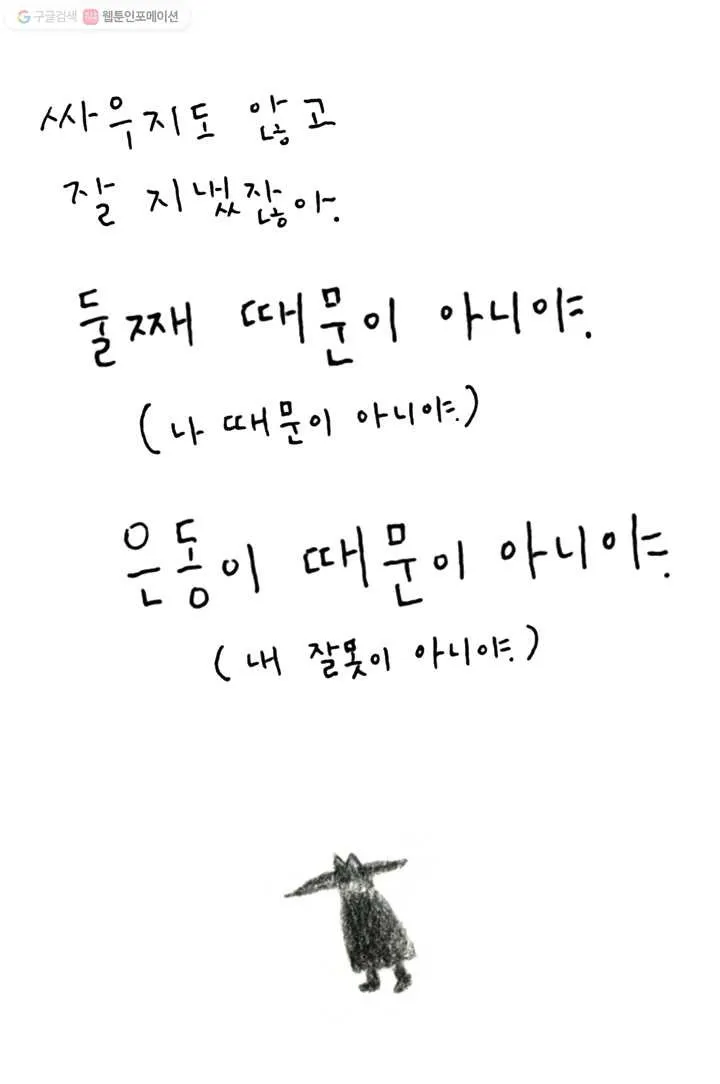 구글검색 웹툰인포메이션
싸우지도 않고
잘 지냈잖아.
둘째 때문이 아니야.
(나 때문이 아니야.)
은동이 때문이 아니야.
(내 잘못이 아니야.)